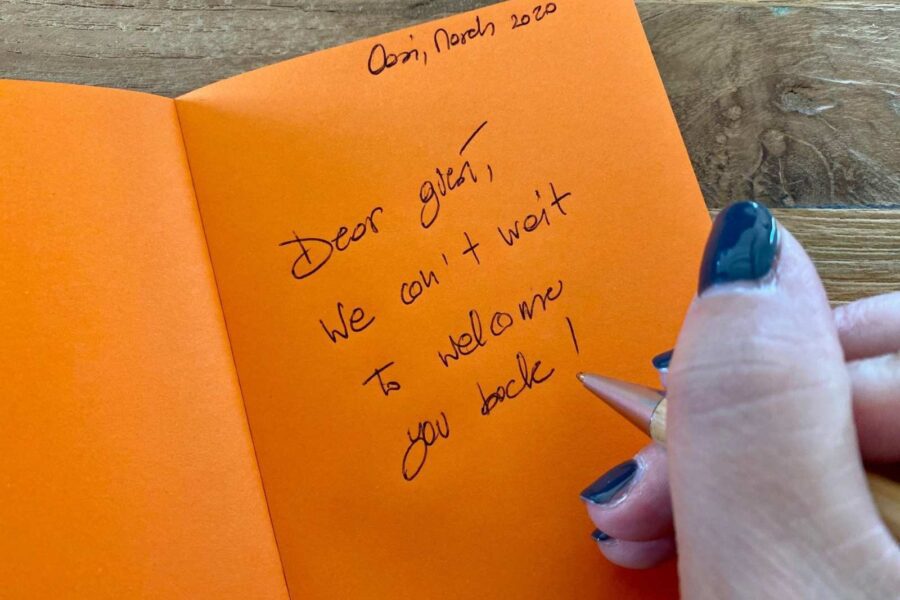 March 2020
Dear guest,
We can't wait
to welcome
you back!